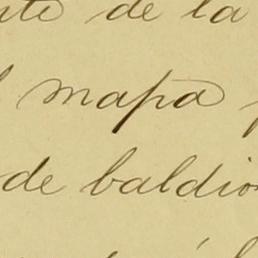 de la
mapa
de baldio